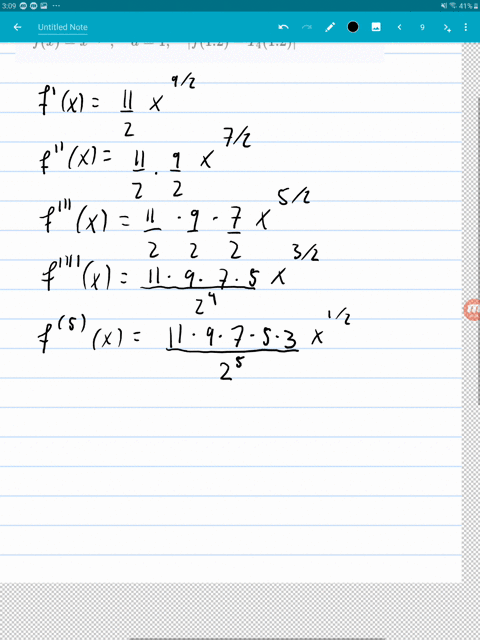 3:09 41%
Untitled Note 9
a = 1, |f(1.2) − T₄(1.2)|
f'(x) = 11/2 x^9/2
f''(x) = 11/2 · 9/2 x^7/2
f'''(x) = 11/2 · 9/2 · 7/2 x^5/2
f''''(x) = 11 · 9 · 7 · 5/2^4 x^3/2
f^(5)(x) = 11 · 9 · 7 · 5 · 3/2^5 x^1/2